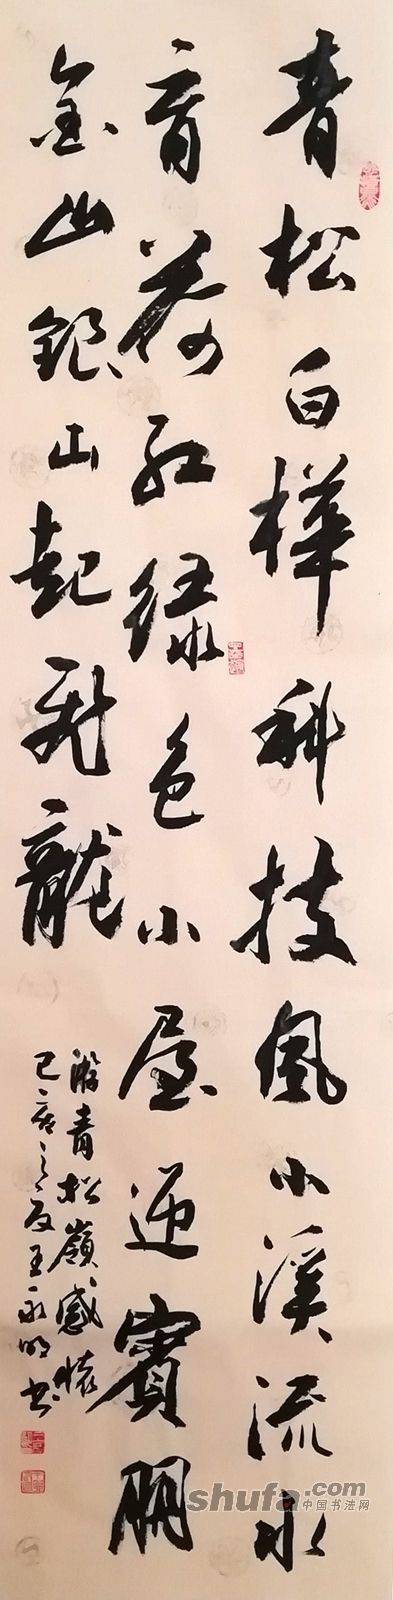 青松白桦科技风小溪流水
育荷红绿色小屋迎宾朋
金山银山起飞龍
游青松嶺感懷
己亥之夏王永明书
shufa.com
中国书法网